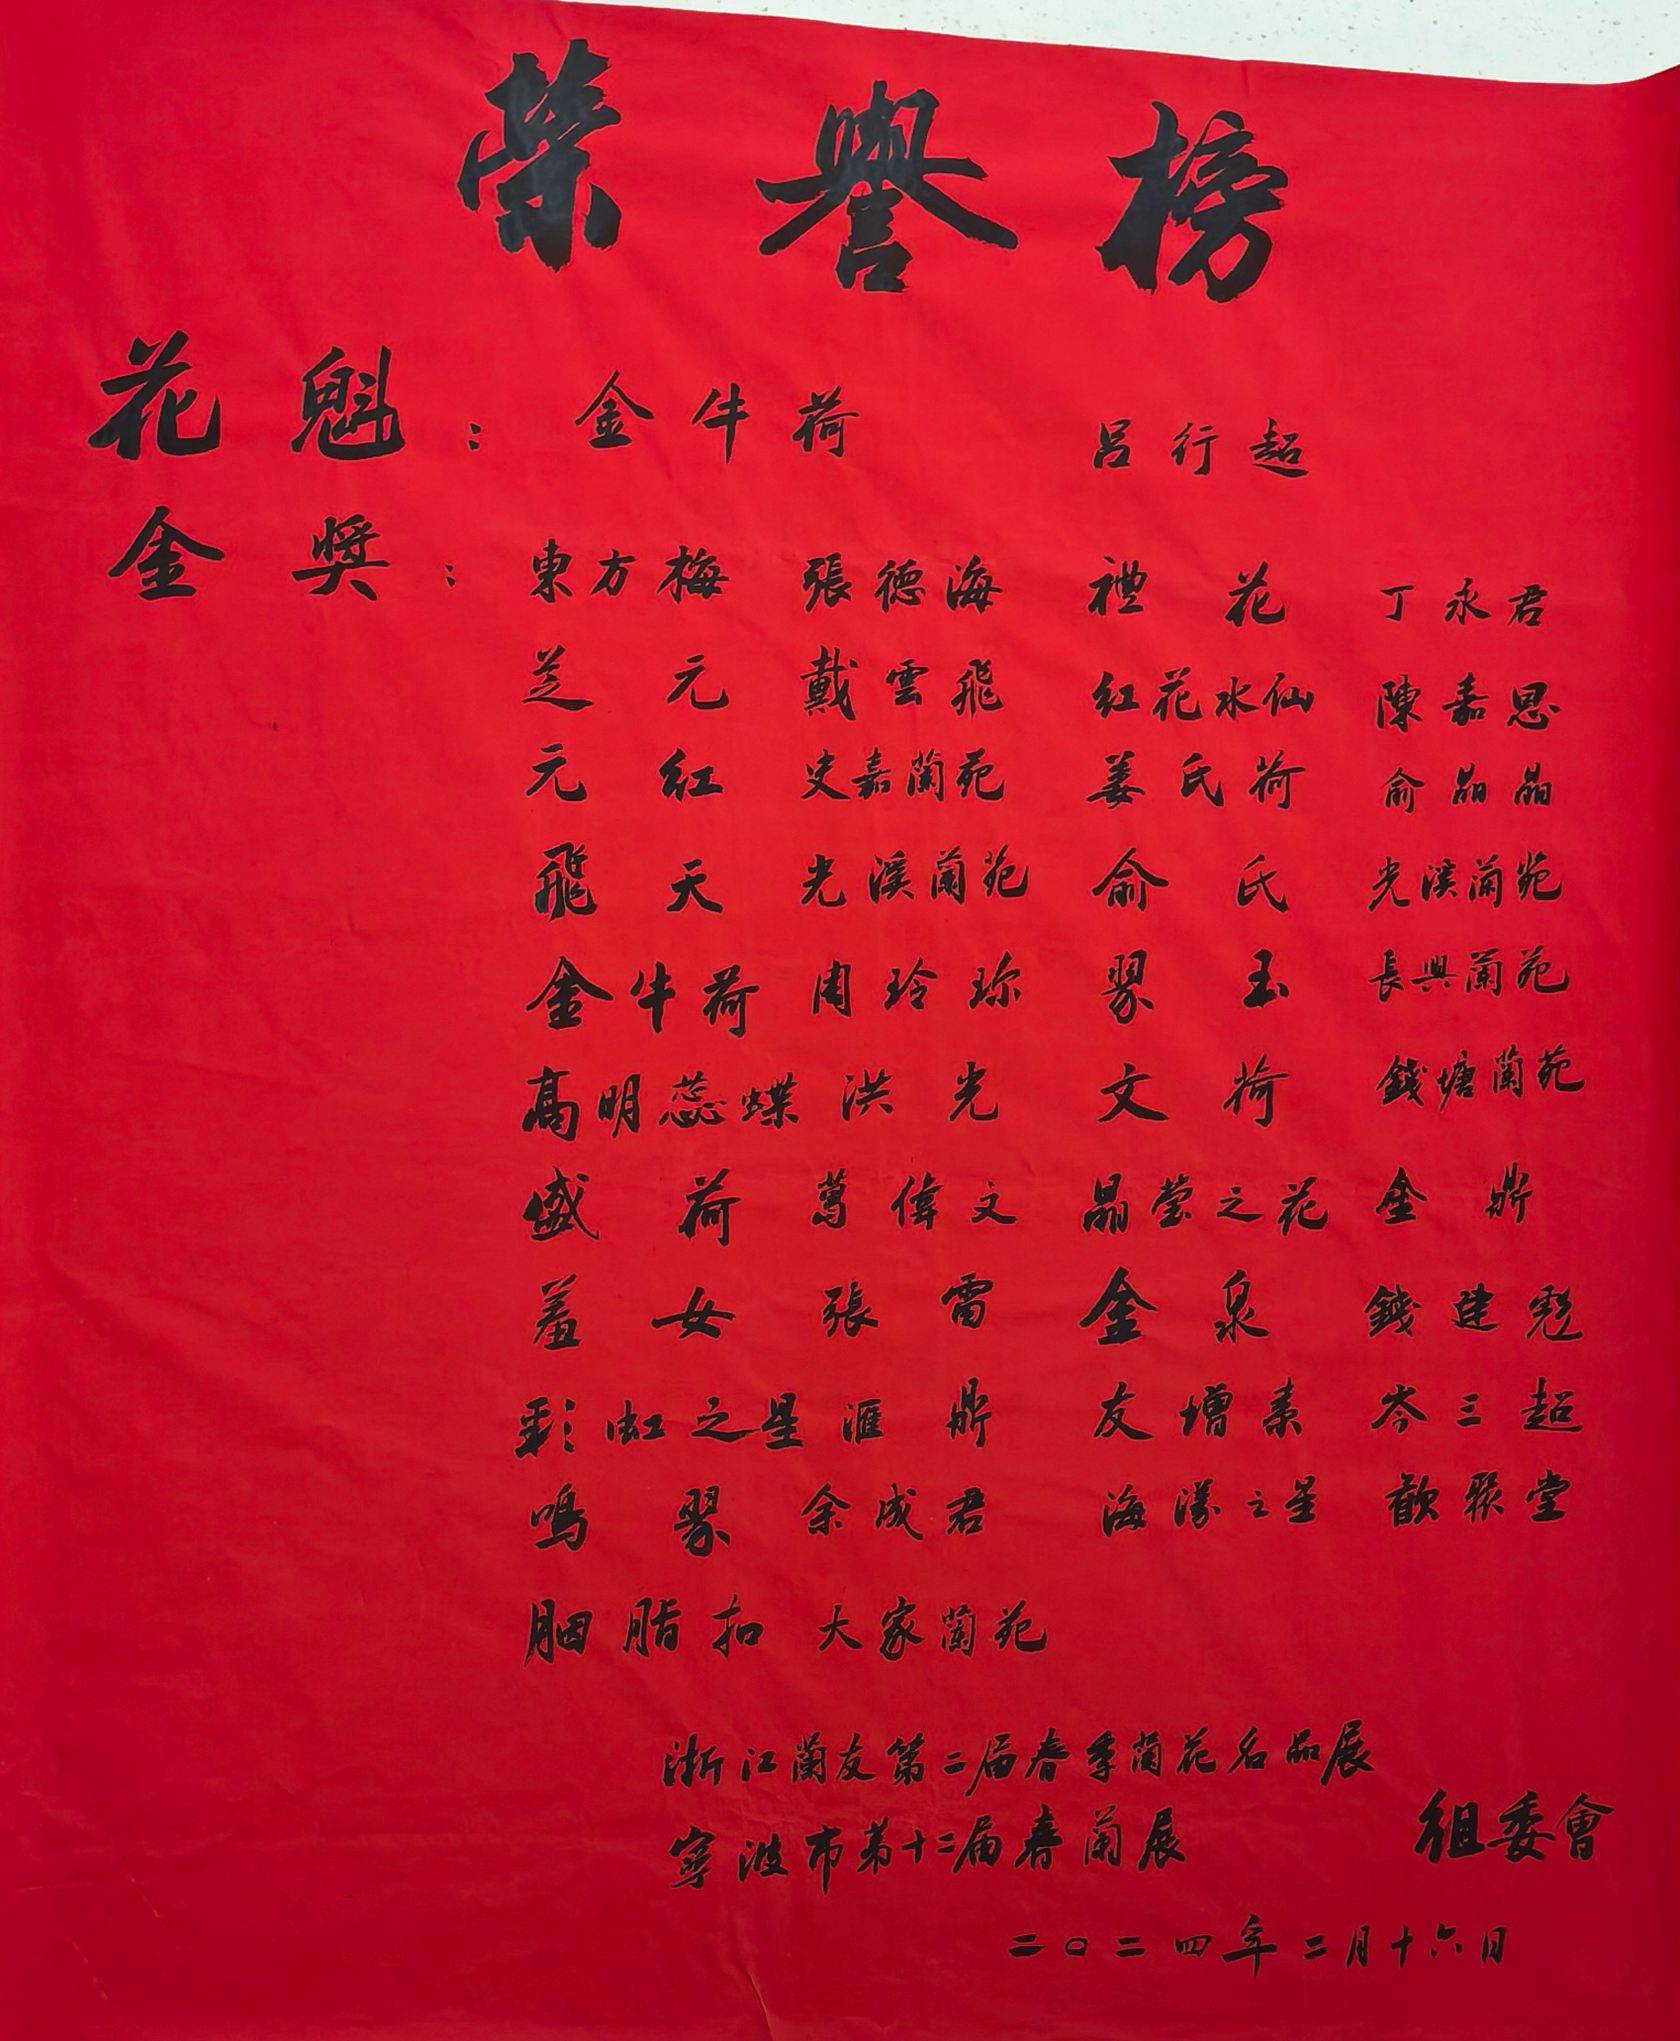 榮譽榜
花魁：金牛荷 呂行超
金獎：東方梅 張德海 禮花 丁永君
芝元 戴雲飛 紅花水仙 陳嘉恩
元紅 史嘉蘭苑 姜氏荷 俞晶晶
飛天 光溪蘭苑 俞氏 光溪蘭苑
金牛荷 周玲珍 翠玉 長興蘭苑
高明蕊蝶 洪光 文荷 錢塘蘭苑
盛荷 葛偉文 晶瑩之花 金鼎
羞女 張雷 金泉 錢建彪
彩虹之星 滙鼎 友增素 岑三超
鳴翠 余成君 海漾之星 歡聚堂
胭脂扣 大家蘭苑
浙江蘭友第二届春季蘭花名品展
寧波市第十二届春蘭展 組委會
二〇二四年二月十六日